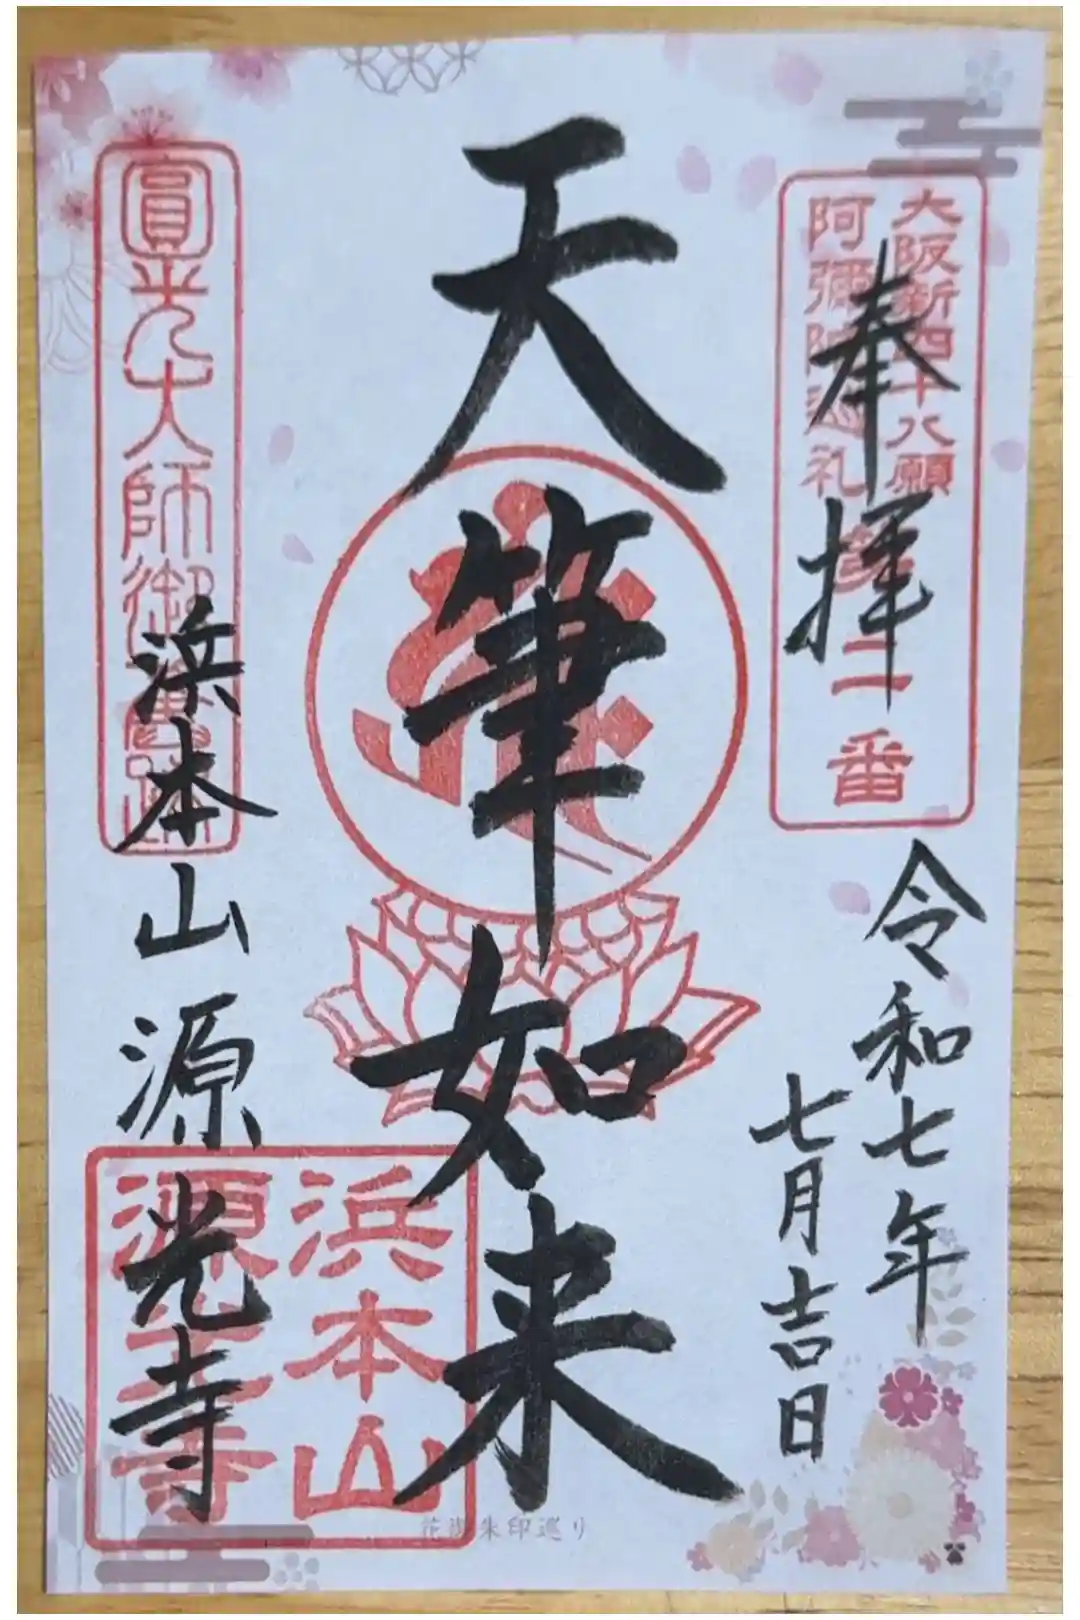 奉拝
大阪新四十八願
阿彌陀巡礼
第二番
令和七年
七月吉日
天筆如来
圓光大師御舊跡
浜本山源光寺
浜本山
源光寺
花御朱印巡り